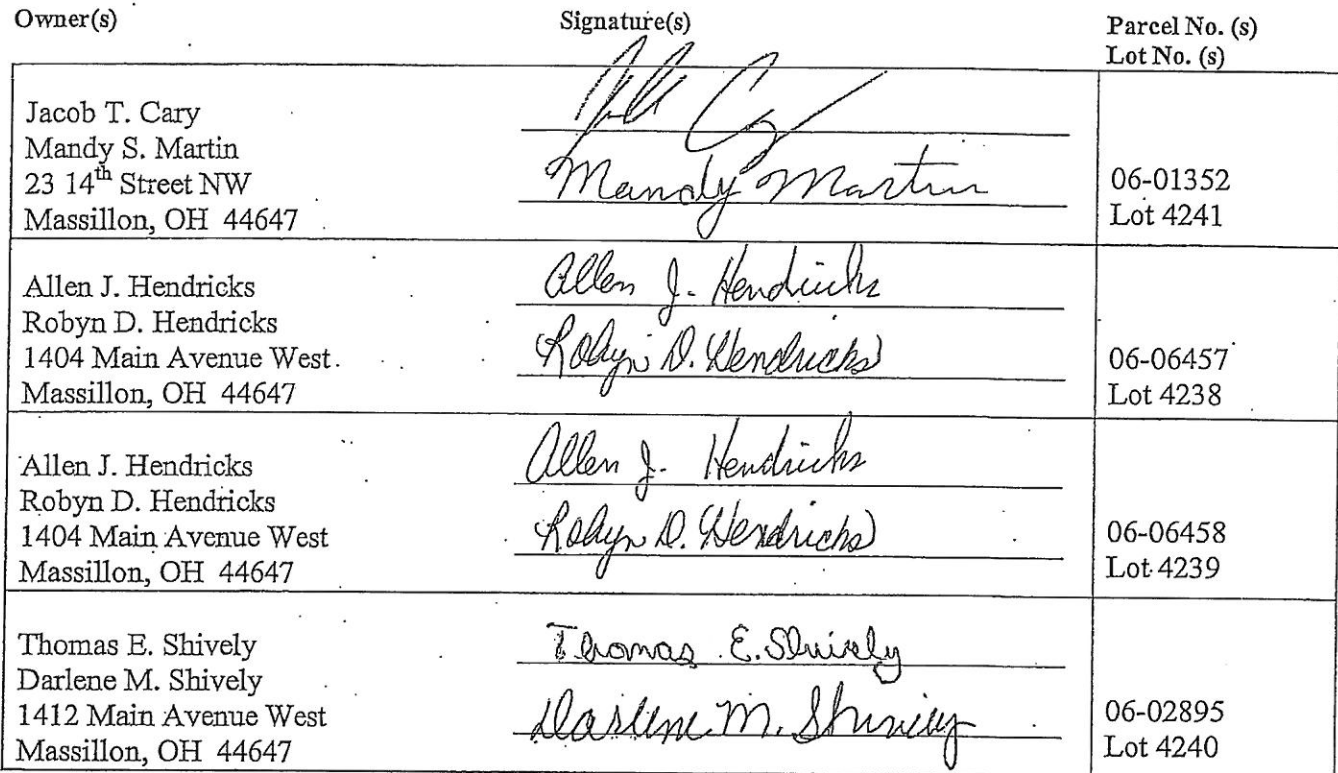 Owner(s) Signature(s) Parcel No. (s)
Lot No. (s)
Jacob T. Cary
Mandy S. Martin
23 14th Street NW
Massillon, OH 44647
Mandy Martin
06-01352
Lot 4241
Allen J. Hendricks
Robyn D. Hendricks
1404 Main Avenue West
Massillon, OH 44647
Allen J. Hendricks
Robyn D. Hendricks
06-06457
Lot 4238
Allen J. Hendricks
Robyn D. Hendricks
1404 Main Avenue West
Massillon, OH 44647
Allen J. Hendricks
Robyn D. Hendricks
06-06458
Lot 4239
Thomas E. Shively
Darlene M. Shively
1412 Main Avenue West
Massillon, OH 44647
Thomas E. Shively
Darlene M. Shively
06-02895
Lot 4240